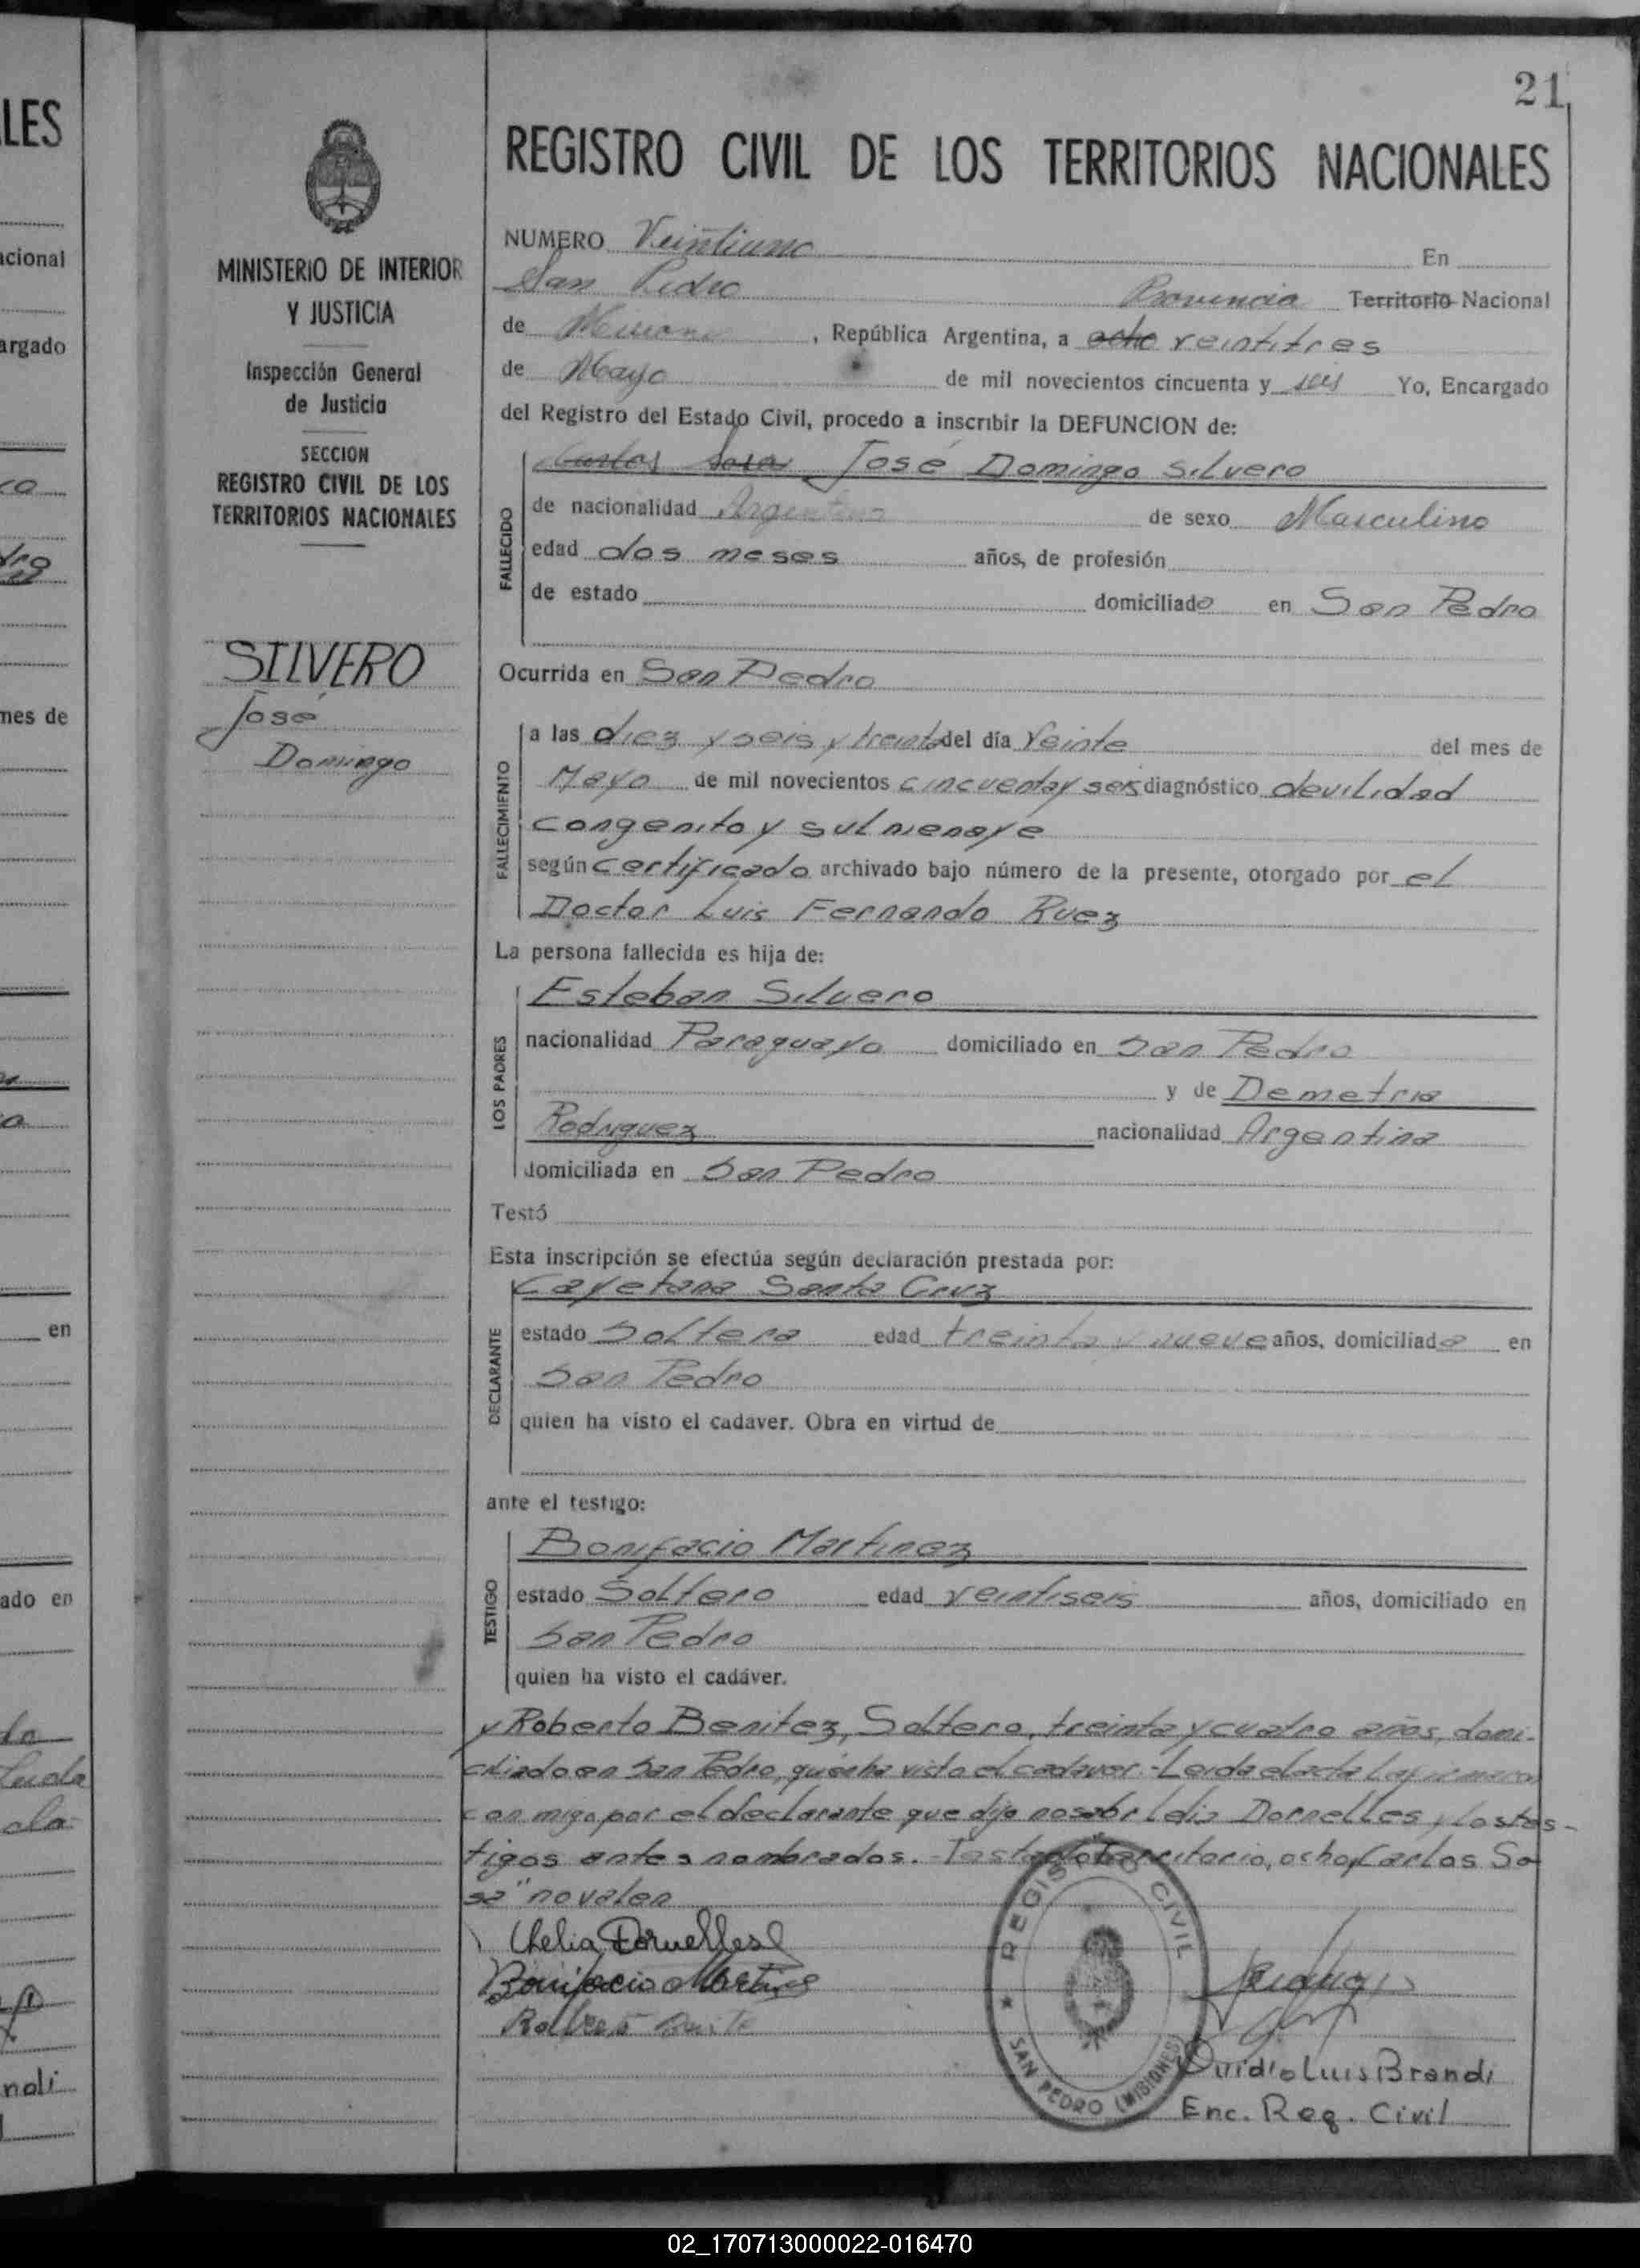 21
REGISTRO CIVIL DE LOS TERRITORIOS NACIONALES
MINISTERIO DE INTERIOR
Y JUSTICIA
Inspección General
de Justicia
SECCION
REGISTRO CIVIL DE LOS
TERRITORIOS NACIONALES
SILVERO
José
Domingo
NUMERO Veintiuno En
San Pedro Provincia Territorio Nacional
de Misiones, República Argentina, a ocho veintitres
de Mayo de mil novecientos cincuenta y seis Yo, Encargado
del Registro del Estado Civil, procedo a inscribir la DEFUNCION de:
Carlos Sosa José Domingo Silvero
FALLECIDO
de nacionalidad Argentino de sexo Masculino
edad dos meses años, de profesión
de estado domiciliado en San Pedro
Ocurrida en San Pedro
FALLECIMIENTO
a las diez y seis y treinta del día Veinte del mes de
Mayo de mil novecientos cincuenta y seis diagnóstico devilidad
congenita y
según certificado archivado bajo número de la presente, otorgado por el
Doctor Luis Fernando Ruez
La persona fallecida es hija de:
LOS PADRES
Esteban Silvero
nacionalidad Paraguayo domiciliado en San Pedro
y de Demetria
Rodriguez nacionalidad Argentina
domiciliada en San Pedro
Testó
Esta inscripción se efectúa según declaración prestada por:
DECLARANTE
Cayetana Santa Cruz
estado Soltera edad treinta y nueve años, domiciliada en
San Pedro
quien ha visto el cadaver. Obra en virtud de
ante el testigo:
TESTIGO
Bonifacio Martinez
estado Soltero edad veintiseis años, domiciliado en
San Pedro
quien ha visto el cadáver.
y Roberto Benitez, Soltero, treinta y cuatro años, domi-
ciliado en San Pedro, quien ha visto el cadaver.- Leida el acta la firmaron
con migo por el declarante que dijo no saber Dornelles y los tes-
tigos antes nombrados.- Testado Territorio, ocho, Carlos So
sa" no valen
Bonifacio Martinez
REGISTRO CIVIL
SAN PEDRO (MISIONES)
Ovidio Luis Brandi
Enc. Reg. Civil
LES
acional
argado
mes de
en
ado en
02_170713000022-016470